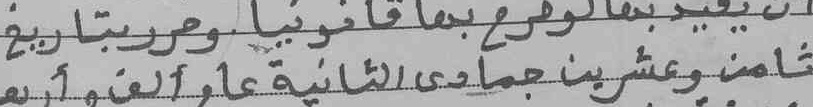 ان يفيد بها لوصرح بها قانونيا. وحرر بتاريخ
ثامن وعشرين جمادى الثانية عام وألف وأربع